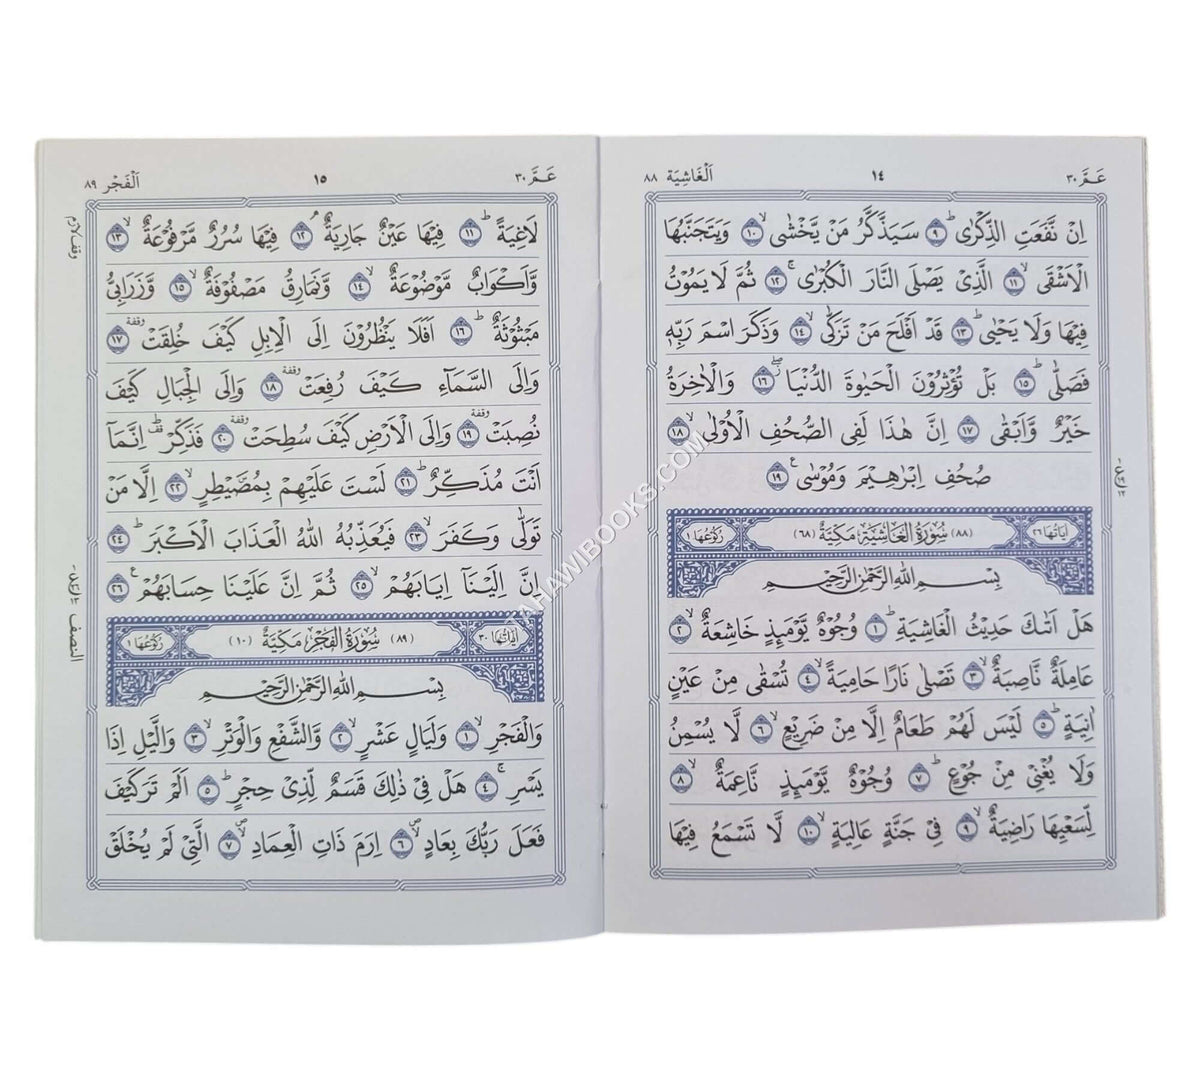 عَمَّ ٣٠
١٤
اَلْغَاشِيَة ٨٨
اِنْ نَّفَعَتِ الذِّكْرٰى ۹ سَيَذَّكَّرُ مَنْ يَّخْشٰى ١٠ وَيَتَجَنَّبُهَا
الْاَشْقَى ١١ الَّذِىْ يَصْلَى النَّارَ الْكُبْرٰى ١٢ ثُمَّ لَا يَمُوْتُ
فِيْهَا وَلَا يَحْيٰى ١٣ قَدْ اَفْلَحَ مَنْ تَزَكّٰى ١٤ وَذَكَرَ اسْمَ رَبِّهٖ
فَصَلّٰى ١٥ بَلْ تُؤْثِرُوْنَ الْحَيٰوةَ الدُّنْيَا ١٦ وَالْاٰخِرَةُ
خَيْرٌ وَّاَبْقٰى ١٧ اِنَّ هٰذَا لَفِى الصُّحُفِ الْاُوْلٰى ١٨
صُحُفِ اِبْرٰهِيْمَ وَمُوْسٰى ١٩
اٰيَاتُهَا ٢٦ (٨٨) سُوْرَةُ الْغَاشِيَةِ مَكِّيَّةٌ (٦٨) رُكُوْعُهَا ١
بِسْمِ اللّٰهِ الرَّحْمٰنِ الرَّحِيْمِ
هَلْ اَتٰىكَ حَدِيْثُ الْغَاشِيَةِ ١ وُجُوْهٌ يَّوْمَىِٕذٍ خَاشِعَةٌ ٢
عَامِلَةٌ نَّاصِبَةٌ ٣ تَصْلٰى نَارًا حَامِيَةً ٤ تُسْقٰى مِنْ عَيْنٍ
اٰنِيَةٍ ٥ لَيْسَ لَهُمْ طَعَامٌ اِلَّا مِنْ ضَرِيْعٍ ٦ لَّا يُسْمِنُ
وَلَا يُغْنِىْ مِنْ جُوْعٍ ٧ وُجُوْهٌ يَّوْمَىِٕذٍ نَّاعِمَةٌ ٨
لِّسَعْيِهَا رَاضِيَةٌ ٩ فِىْ جَنَّةٍ عَالِيَةٍ ١٠ لَّا تَسْمَعُ فِيْهَا
عَمَّ ٣٠
١٥
اَلْفَجْر ٨٩
لَاغِيَةً ١١ فِيْهَا عَيْنٌ جَارِيَةٌ ١٢ فِيْهَا سُرُرٌ مَّرْفُوْعَةٌ ١٣
وَّاَكْوَابٌ مَّوْضُوْعَةٌ ١٤ وَّنَمَارِقُ مَصْفُوْفَةٌ ١٥ وَّزَرَابِىُّ
مَبْثُوْثَةٌ ١٦ اَفَلَا يَنْظُرُوْنَ اِلَى الْاِبِلِ كَيْفَ خُلِقَتْ وقفة ١٧
وَاِلَى السَّمَآءِ كَيْفَ رُفِعَتْ وقفة ١٨ وَاِلَى الْجِبَالِ كَيْفَ
نُصِبَتْ وقفة ١٩ وَاِلَى الْاَرْضِ كَيْفَ سُطِحَتْ وقفة ٢٠ فَذَكِّرْ قف اِنَّمَآ
اَنْتَ مُذَكِّرٌ ٢١ لَسْتَ عَلَيْهِمْ بِمُصَۜيْطِرٍ ٢٢ اِلَّا مَنْ
تَوَلّٰى وَكَفَرَ ٢٣ فَيُعَذِّبُهُ اللّٰهُ الْعَذَابَ الْاَكْبَرَ ٢٤
اِنَّ اِلَيْنَآ اِيَابَهُمْ ٢٥ ثُمَّ اِنَّ عَلَيْنَا حِسَابَهُمْ ٢٦
اٰيَاتُهَا ٣٠ (٨٩) سُوْرَةُ الْفَجْرِ مَكِّيَّةٌ (١٠) رُكُوْعُهَا ١
بِسْمِ اللّٰهِ الرَّحْمٰنِ الرَّحِيْمِ
وَالْفَجْرِ ١ وَلَيَالٍ عَشْرٍ ٢ وَّالشَّفْعِ وَالْوَتْرِ ٣ وَالَّيْلِ اِذَا
يَسْرِ ٤ هَلْ فِىْ ذٰلِكَ قَسَمٌ لِّذِىْ حِجْرٍ ٥ اَلَمْ تَرَ كَيْفَ
فَعَلَ رَبُّكَ بِعَادٍ ٦ اِرَمَ ذَاتِ الْعِمَادِ ٧ الَّتِىْ لَمْ يُخْلَقْ
وقف لازم
النصف
TAHAWIBOOKS.COM